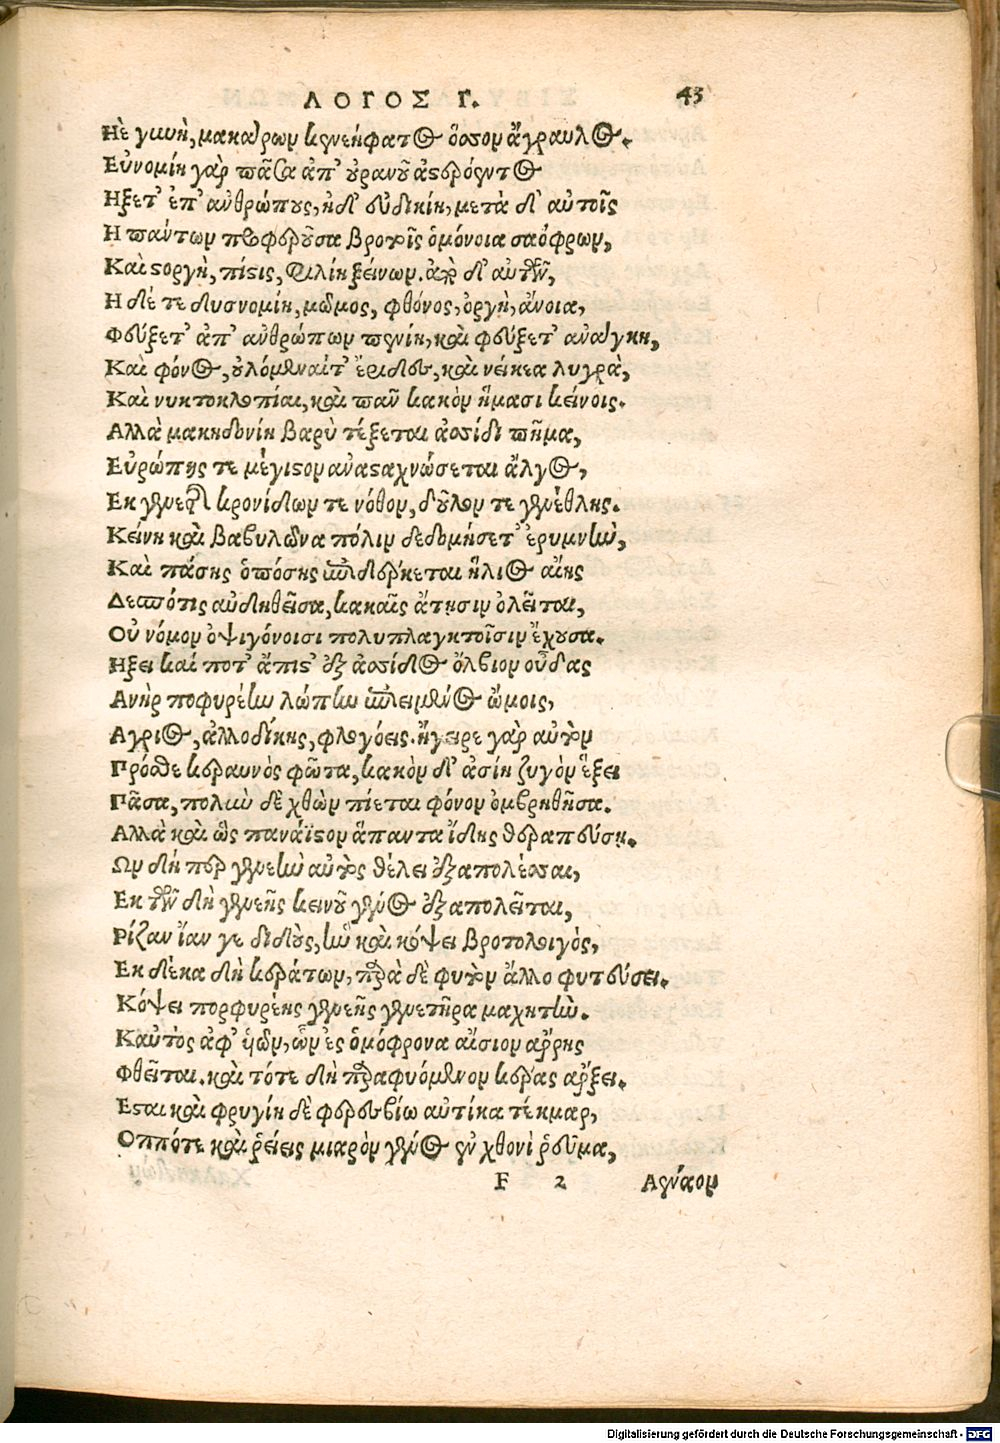 ΛΟΓΟΣ Γ. 43
Ηὲ γυνὴ, μακάρων κενεήφατος ὅσσον ἄγραυλος.
Εὐνομίη γὰρ πᾶσα ἀπ' οὐρανοῦ ἀστερόεντος
Ηξετ' ἐπ' ἀνθρώπους, ἠδ' εὐδικίη, μετὰ δ' αὐτοῖς
Η πάντων προφεροῦσα βροτοῖς ὁμόνοια σαόφρων,
Καὶ στοργὴ, πίστις, φιλίη ξείνων. ἀπὸ δ' αὐτῶν,
Η δέ τε δυσνομίη, μῶμος, φθόνος, ὀργὴ, ἄνοια,
Φεύξετ' ἀπ' ἀνθρώπων πενίη, καὶ φεύξετ' ἀνάγκη,
Καὶ φόνος, οὐλόμεναίτ' ἔριδες, καὶ νείκεα λυγρὰ,
Καὶ νυκτοκλοπίαι, καὶ πᾶν κακὸν ἤμασι κείνοις.
Αλλὰ μακηδονίη βαρὺ τέξεται ἀσσίδι πῆμα,
Εὐρώπης τε μέγιστον ἀνασταχυώσεται ἄλγος,
Εκ γενεῆς κρονίδων τε νόθων, δούλων τε γενέθλης.
Κείνη καὶ βαβυλῶνα πόλιν δεδομήσετ' ἐρυμνὴν,
Καὶ πάσης ὁπόσης ἐπιδέρκεται ἥλιος αἴης
Δεσπότις αὐδηθεῖσα, κακαῖς ἄτῃσιν ὀλεῖται,
Οὐ νόμον ὀψιγόνοισι πολυπλαγκτοῖσιν ἔχουσα.
Ηξει καί ποτ' ἄπιστ' ἐξ ἀσσίδος ὄλβιον οὖδας
Ανὴρ ποφυρέην λώπην ἐπιειμένος ὤμοις,
Αγριος, ἀλλοδίκης, φλογόεις. ἤγειρε γὰρ αὐτὸν
Πρόσθε κεραυνὸς φῶτα, κακὸν δ' ἀσίη ζυγὸν ἕξει
Πᾶσα, πολὺν δὲ χθὼν πίεται φόνον ὀμβρηθῆσα.
Αλλὰ καὶ ὣς πανάϊστον ἅπαντα ἄϊδης θεραπεύσῃ.
Ων δή περ γενεὴν αὐτὸς θέλει ἐξαπολέσσαι,
Εκ τῶν δὴ γενεῆς κεινοῦ γένος ἐξαπολεῖται,
Ρίζαν ἴαν γε διδοὺς, ἣν καὶ κόψει βροτολοιγὸς,
Εκ δέκα δὴ κεράτων, παρὰ δὲ φυτὸν ἄλλο φυτεύσει.
Κόψει πορφυρέης γενεῆς γενετῆρα μαχητὴν.
Καὐτὸς ἀφ' υἱῶν, ὧν ἐς ὁμόφρονα αἴσιον ἄρρης
Φθεῖται. καὶ τότε δὴ παραφυόμενον κέρας ἄρξει.
Εσται καὶ φρυγίῃ δὲ φερεσβίῳ αὐτίκα τέκμαρ,
Οππότε καὶ ῥείεις μιαρὸν γένος ἐν χθονὶ ῥεῦμα,
F 2 Αέναον
Digitalisierung gefördert durch die Deutsche Forschungsgemeinschaft - DFG